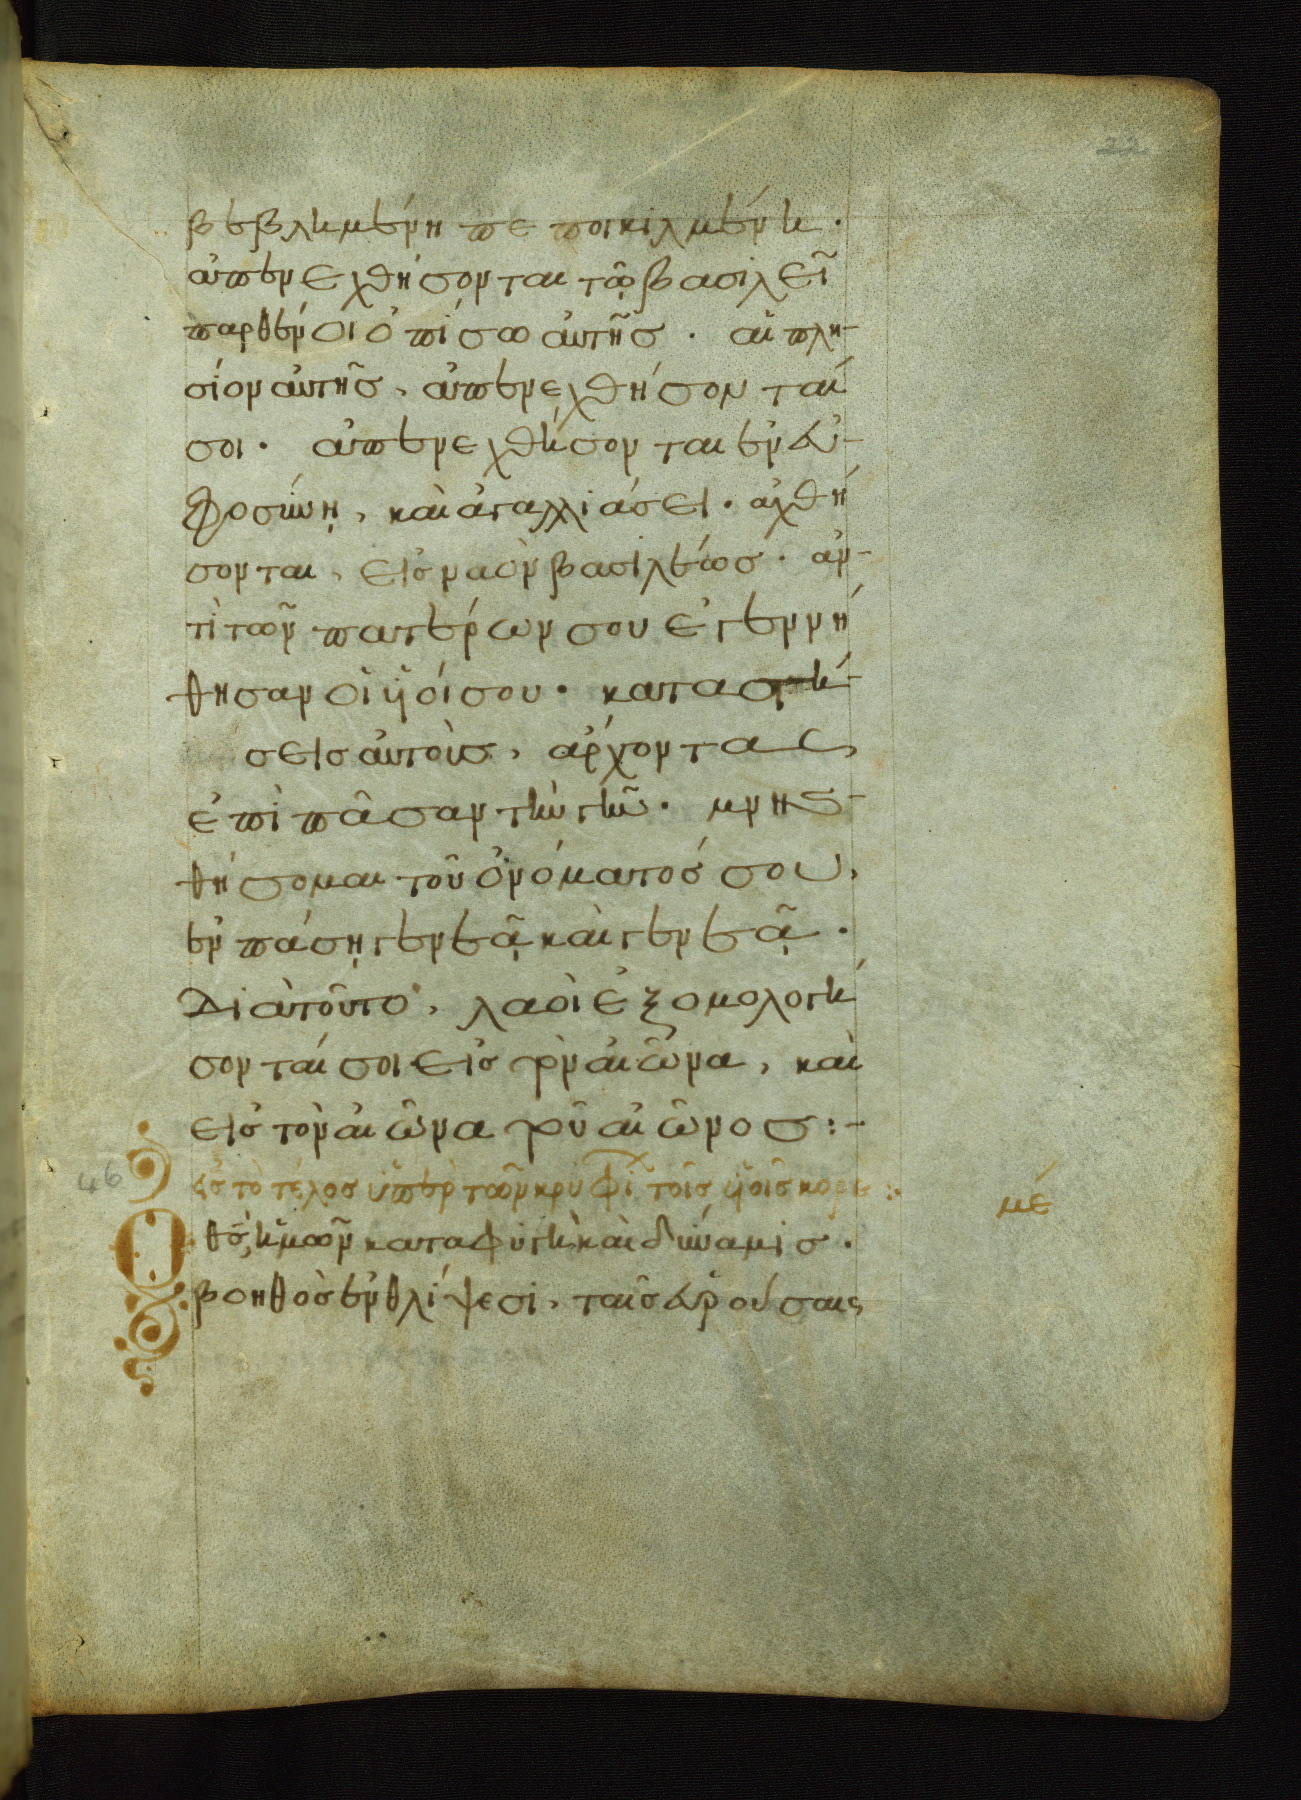 22
βεβλημένη πεποικιλμένη·
ἀπενεχθήσονται τῷ βασιλεῖ
παρθένοι ὀπίσω αὐτῆς· αἱ πλη-
σίον αὐτῆς, ἀπενεχθήσονταί
σοι· ἀπενεχθήσονται ἐν εὐ-
φροσύνῃ, καὶ ἀγαλλιάσει· ἀχθή
σονται, εἰς ναὸν βασιλέως· ἀν-
τὶ τῶν πατέρων σου ἐγεννή
θησαν οἱ ὑιοί σου· καταστή-
σεις αὐτοὺς, ἄρχοντας,
ἐπὶ πᾶσαν τὴν γῆν· μνησ-
θήσομαι τοῦ ὀνόματός σου,
ἐν πάσῃ γενεᾷ καὶ γενεᾷ·
Διὰ τοῦτο, λαοὶ ἐξομολογή
σονταί σοι εἰς τὸν αἰῶνα, καὶ
εἰς τὸν αἰῶνα τοῦ αἰῶνος:-
46 εἰς τὸ τέλος ὑπὲρ τῶν κρυφί τοῖς ὑιοῖς κορε :· με
Ο θς ἡμῶν καταφυγὴ καὶ δύναμις·
βοηθὸς ἐν θλίψεσι, ταῖς εὑρούσαις